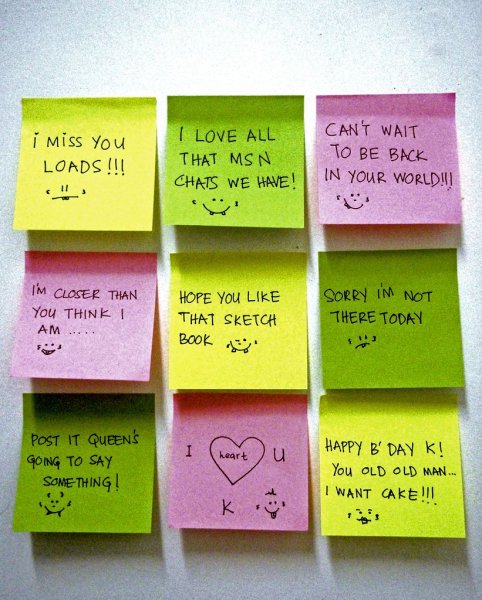 i MISS YOU
LOADS!!!
I LOVE ALL
THAT MSN
CHATS WE HAVE!
CAN'T WAIT
TO BE BACK
IN YOUR WORLD!!!
I'M CLOSER THAN
YOU THINK I
AM .....
HOPE YOU LIKE
THAT SKETCH
BOOK
SORRY I'M NOT
THERE TODAY
POST IT QUEEN'S
GOING TO SAY
SOMETHING!
I heart U
K
HAPPY B'DAY K!
YOU OLD OLD MAN...
I WANT CAKE!!!